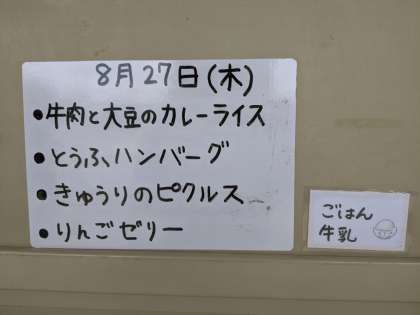 8月27日(木)
●牛肉と大豆のカレーライス
●とうふハンバーグ
●きゅうりのピクルス
●りんごゼリー
ごはん
牛乳